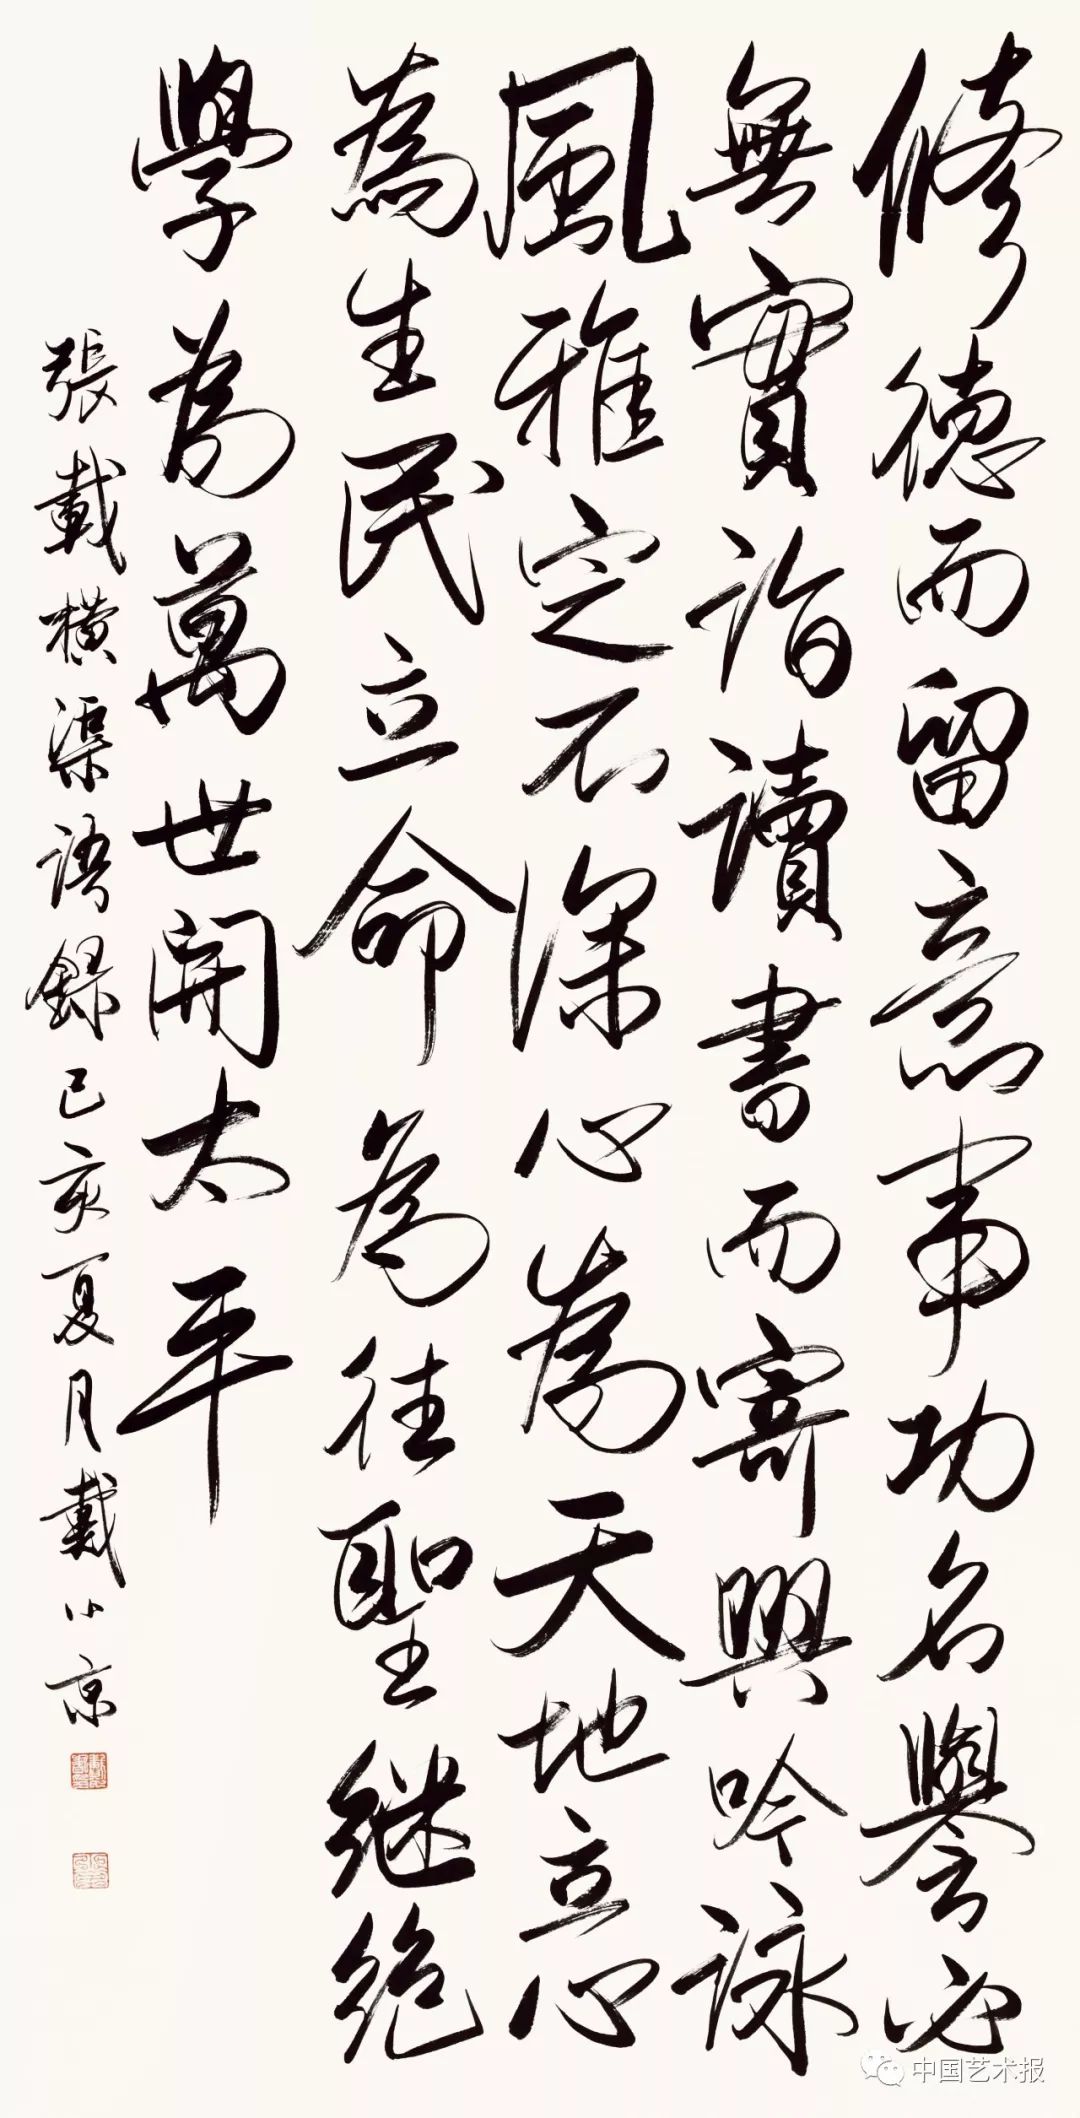 修德而留意事功名譽必
無實詣讀書而寄興吟詠
風雅定不深心為天地立心
為生民立命為往聖継絕
學為萬世開太平
張載橫渠語錄己亥夏月戴小京
中国艺术报